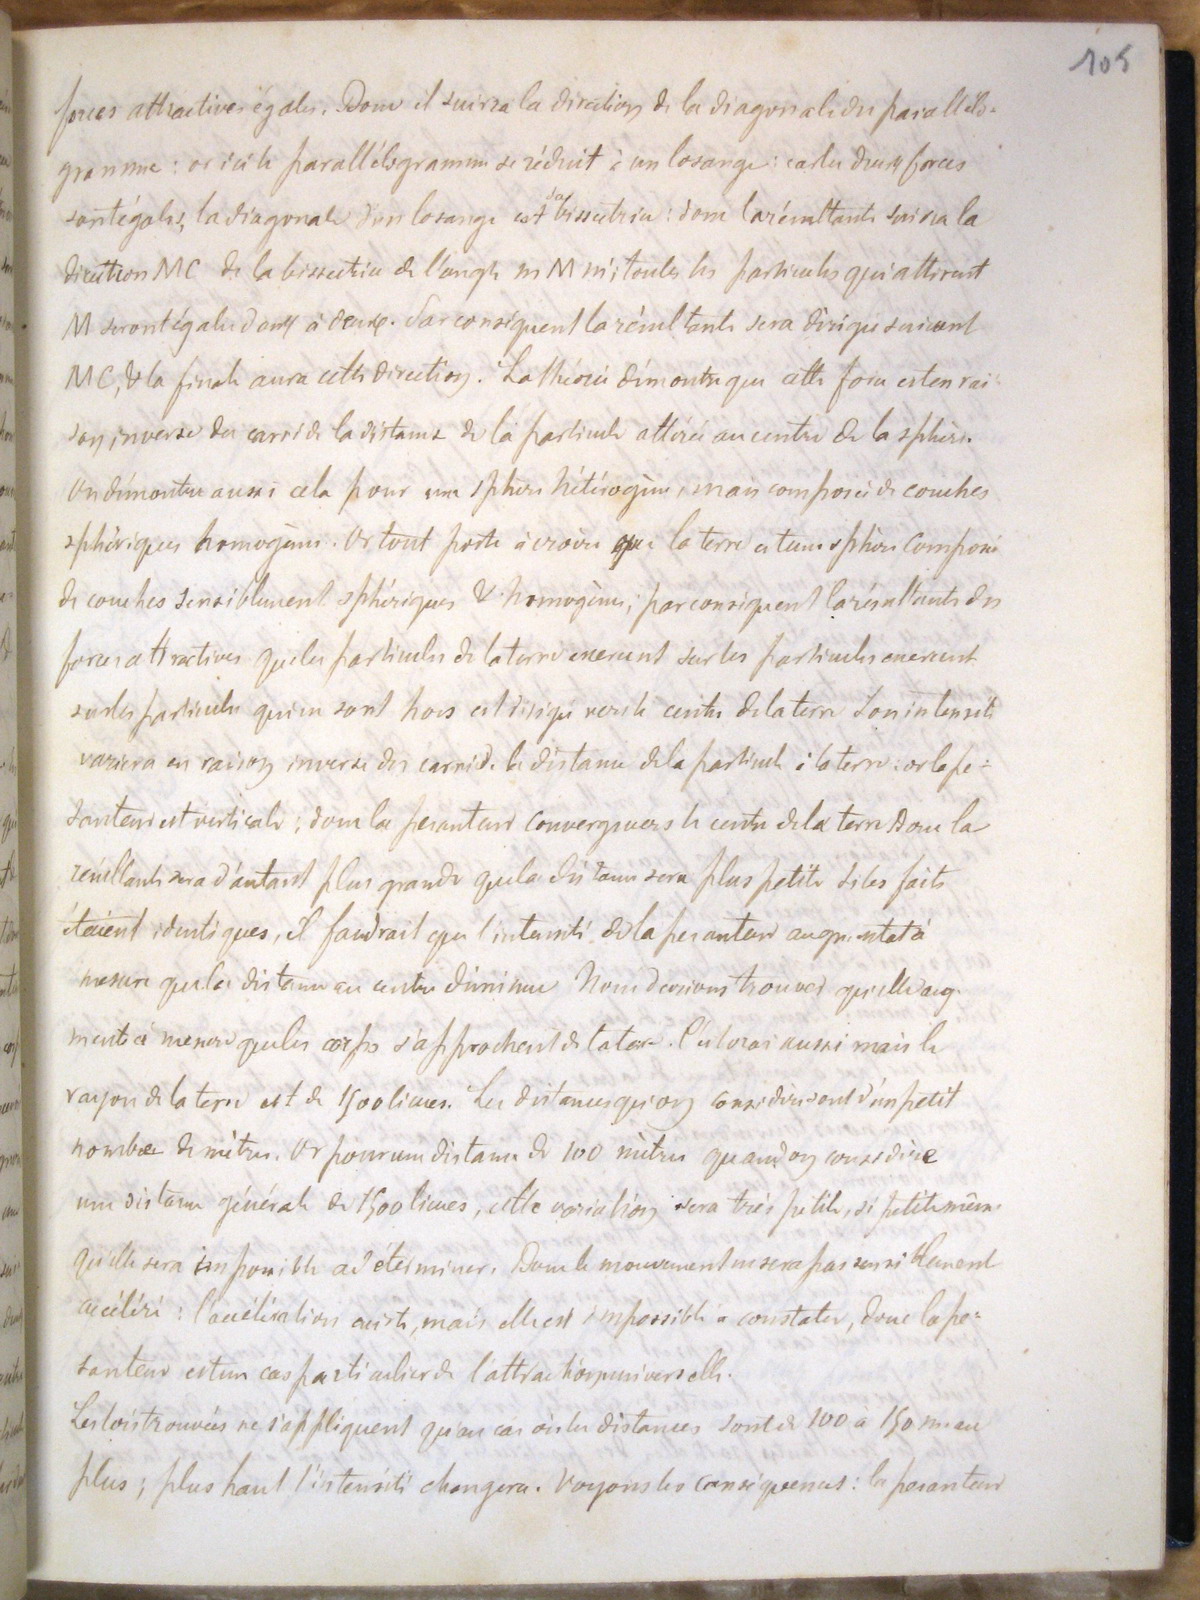 105
forces attractives égales. Donc il suivra la direction de la diagonale du parallélo-
gramme : or ici le parallélogramme se réduit à un losange : car les deux forces
sont égales, la diagonale d'un losange est sa bissectrice : donc la résultante suivra la
direction MC de la bissectrice de l'angle m M m'; toutes les particules qui attirent
M seront égales deux à deux. Par conséquent la résultante sera dirigée suivant
MC, & la finale aura cette direction. La théorie démontre que cette force est en rai-
son inverse du carré de la distance de la particule attirée au centre de la sphère.
On démontre aussi cela pour une sphère hétérogène, mais composée de couches
sphériques homogènes. Or tout porte à croire que la terre est une sphère composée
de couches sensiblement sphériques & homogènes; par conséquent la résultante des
forces attractives que les particules de la terre exercent sur les particules exercent
sur les particules qui en sont hors est dirigée vers le centre de la terre Son intensité
variera en raison inverse du carré de la distance de la particule à la terre : or la pe-
santeur est verticale ; donc la pesanteur converge vers le centre de la terre Donc la
résultante sera d'autant plus grande que la distance sera plus petite Si les faits
étaient identiques, il faudrait que l'intensité de la pesanteur augmentat à
mesure que la distance au centre diminue Nous devrions trouver qu'elle aug-
mente à mesure que les corps s'approchent de la terre. C'est vrai aussi mais le
rayon de la terre est de 1500 lieues. Les distances qu'on considère sont d'un petit
nombre de mètres. Or pour une distance de 100 mètres quand on considère
une distance générale de 1500 lieues, cette variation sera très petite, si petite même
qu'elle sera impossible à déterminer. Donc le mouvement ne sera pas sensiblement
accéléré : l'accélération existe, mais elle est impossible à constater, donc la pe-
santeur est un cas particulier de l'attraction universelle.
Les lois trouvées ne s'appliquent qu'au cas où les distances sont de 100 à 150 m au
plus ; plus haut l'intensité changera. Voyons les conséquences : la pesanteur